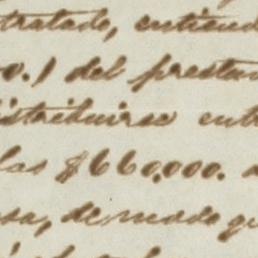 tratado, entiend
o.) del presta
istribuirse ent
las $660,000. a
sa, de modo q